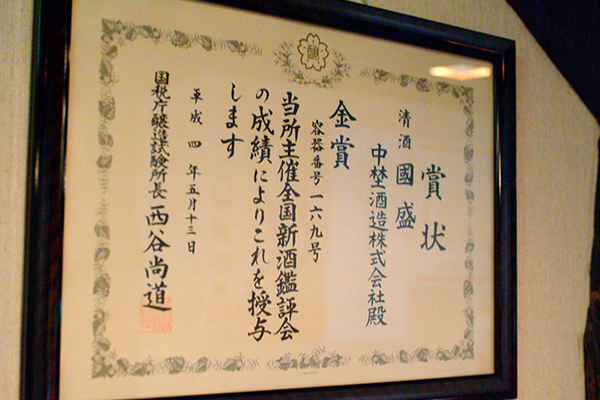 賞状
清酒 國盛
中埜酒造株式会社殿
金賞
容器番号一六九号
当所主催全国新酒鑑評会
の成績によりこれを授与
します
平成四年五月十三日
国税庁醸造試験所長 西谷尚道